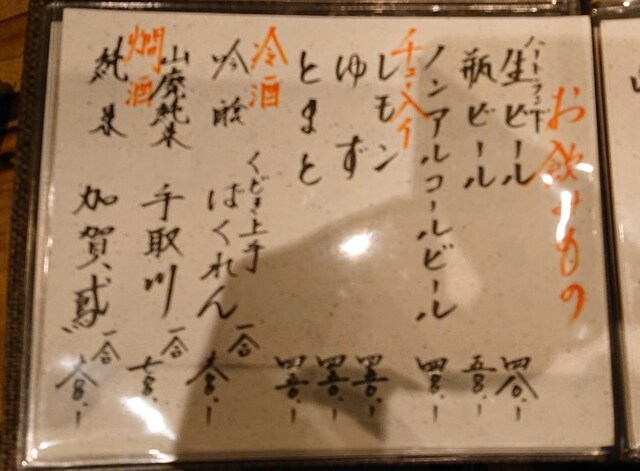 お飲みもの
ハートランド
生ビール 四八〇.-
瓶ビール 五八〇.-
ノンアルコールビール 四八〇.-
チューハイ
レモン 四五〇.-
ゆず 四五〇.-
とまと 四五〇.-
冷酒
くどき上手
吟醸 はくれん 一合 六八〇.-
燗酒
山廃純米 手取川 一合 七八〇.-
純米 加賀鳶 一合 六八〇.-